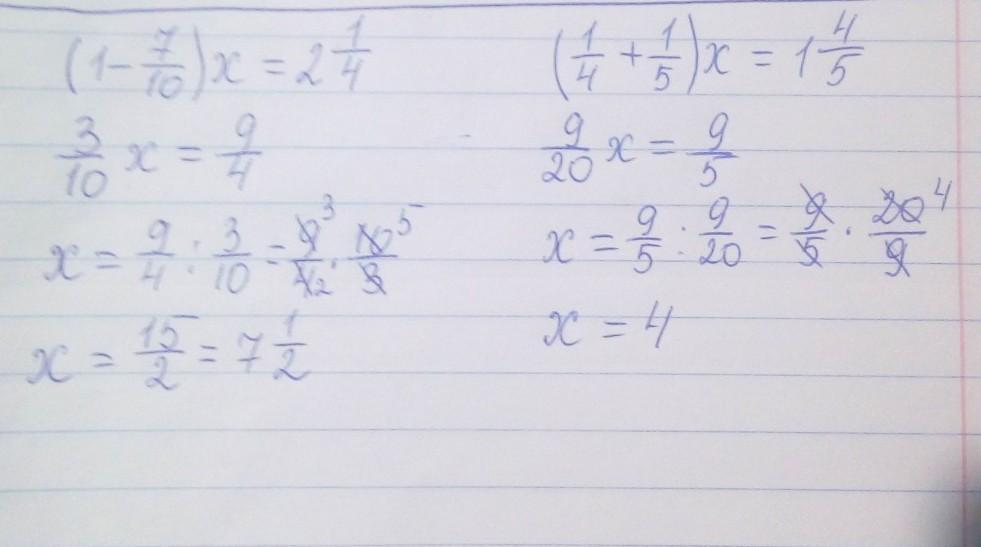 (1 - 7/10)x = 2 1/4
3/10 x = 9/4
x = 9/4 : 3/10 = 9̸³/4̸₂ · 1̸0̸⁵/3̸
x = 15/2 = 7 1/2
(1/4 + 1/5)x = 1 4/5
9/20 x = 9/5
x = 9/5 : 9/20 = 9̸/5̸ · 2̸0̸⁴/9̸
x = 4